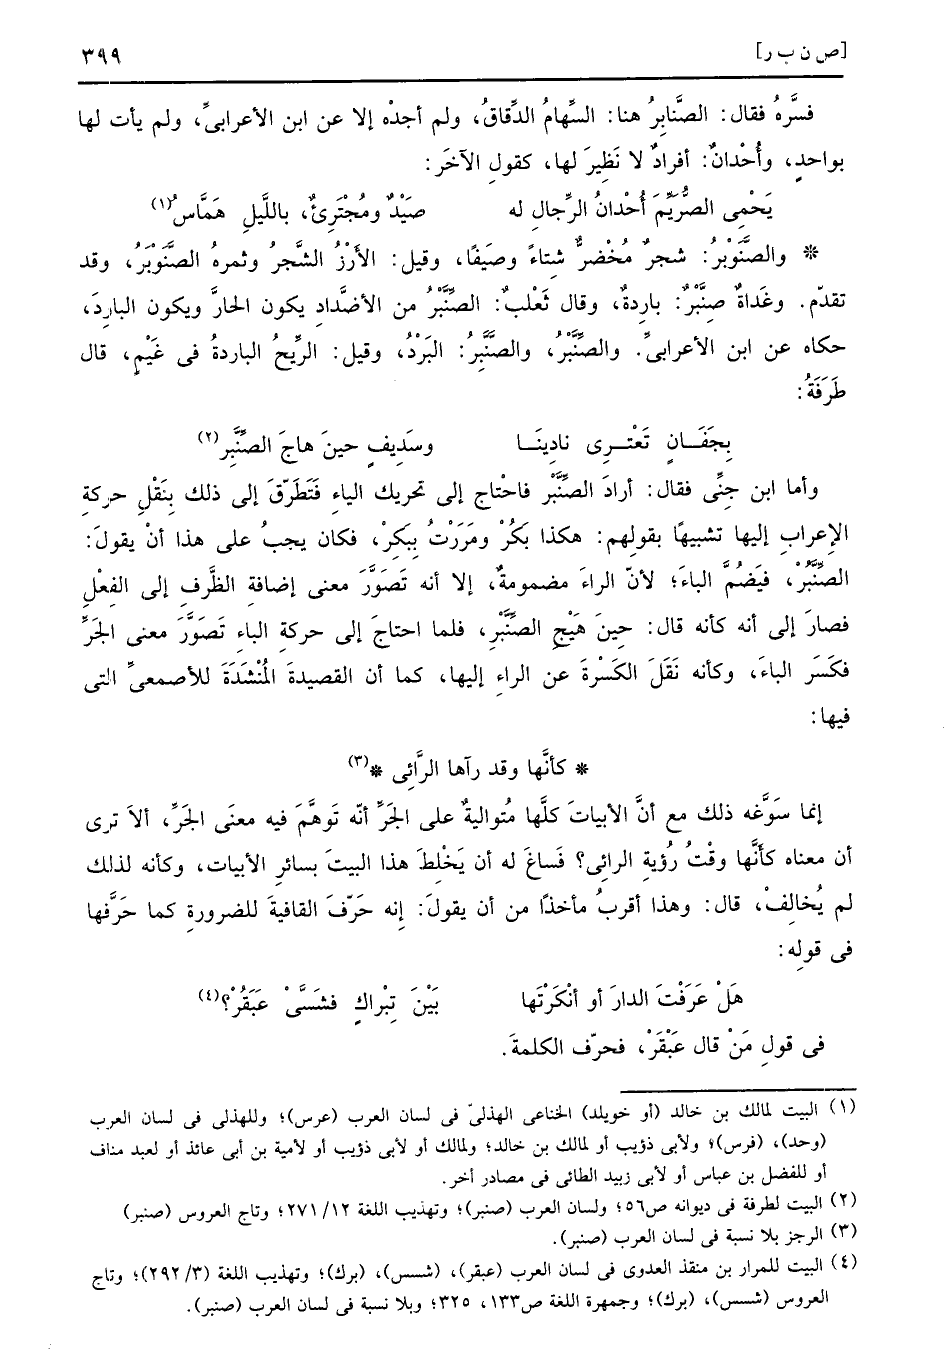 [ص ن ب ر] ٣٩٩
فسَّرهُ فقال: الصَّنابِرُ هنا: السِّهامُ الدِّقاقُ، ولم أجدْه إلا عن ابن الأعرابىِّ، ولم يأت لها
بواحدٍ، وأُحْدانٌ: أفرادٌ لا نَظِيرَ لها، كقولِ الآخَر:
يَحْمِى الصُّرِيَّمَ أُحْدانُ الرِّجالِ له صَيْدٌ ومُجْتَرِئٌ، باللَّيلِ هَمَّاسُ(١)
* والصَّنَوْبرُ: شجرٌ مُخْضرٌّ شتاءً وصَيفًا، وقيل: الأَرْزُ الشَّجرُ وثمرهُ الصَّنَوْبَرُ، وقد
تقدّم. وغَداةٌ صِنَّبْرٌ: باردةٌ، وقال ثَعْلبٌ: الصِّنَّبْرُ من الأضَّدادِ يكون الحارَّ ويكون الباردَ،
حكاه عن ابن الأعرابىِّ. والصِّنَّبْرُ، والصَّنَّبِرُ: البَرْدُ، وقيل: الرِّيحُ الباردةُ فى غَيْمٍ، قال
طَرَفَةُ:
بِجَفَــانٍ تَعْتــرِى نادِينَــا وسَدِيفٍ حينَ هاجَ الصِّنَّبِر(٢)
وأما ابن جِنِّى فقال: أرادَ الصِّنَّبْر فاحْتاج إلى تحريك الباءِ فَتَطَرَّقَ إلى ذلك بِنَقْلِ حركةِ
الإعرابِ إليها تشبيهًا بقولهِم: هكذا بَكُرْ ومَرَرْتُ بِبَكِرْ، فكان يجبُ على هذا أنْ يقولَ:
الصِّنَّبُرْ، فيَضُمَّ الباءَ؛ لأنّ الراءَ مضمومةٌ، إلا أنه تَصَوَّرَ معنى إضافةِ الظَّرفِ إلى الفِعْلِ
فصارَ إلى أنه كأنه قال: حِينَ هَيْجِ الصِّنَّبْرِ، فلما احتاجَ إلى حركةِ الباءِ تَصَوَّرَ معنى الجَرِّ
فكَسَر الباءَ، وكأنه نَقَلَ الكَسْرةَ عن الراءِ إليها، كما أن القصيدةَ المُنْشَدَةَ للأصمعىِّ التى
فيها:
* كأنَّها وقد رآها الرَّائِى *(٣)
إنما سَوَّغه ذلك مع أنَّ الأبياتَ كلَّها مُتواليةٌ على الجَرِّ أنّه تَوهَّمَ فيه معنَى الجَرِّ، ألاَ ترى
أن معناه كأنَّها وقْتُ رُؤيةِ الرائِى؟ فَساغَ له أن يَخْلِطَ هذا البيتَ بسائرِ الأبياتِ، وكأنه لذلك
لم يُخالِفْ، قال: وهذا أقربُ مأخذًا من أن يقولَ: إنه حَرّفَ القافيةَ للضرورةِ كما حَرَّفها
فى قولِه:
هَلْ عَرَفْتَ الدارَ أو أنْكَرْتَها بَيْنَ تِبْراكٍ فشَسَّىْ عَبَقُرْ؟(٤)
فى قولِ مَنْ قال عَبْقَرْ، فحرّف الكلمةَ.
(١) البيت لمالك بن خالد (أو خويلد) الخناعى الهذلىّ فى لسان العرب (عرس)؛ وللهذلى فى لسان العرب
(وحد)، (فرس)؛ ولأبى ذؤيب أو لمالك بن خالد؛ ولمالك أو لأبى ذؤيب أو لأمية بن أبى عائذ أو لعبد مناف
أو للفضل بن عباس أو لأبى زبيد الطائى فى مصادر أخر.
(٢) البيت لطرفة فى ديوانه ص٥٦؛ ولسان العرب (صنبر)؛ وتهذيب اللغة ٢٧١/١٢؛ وتاج العروس (صنبر)
(٣) الرجز بلا نسبة فى لسان العرب (صنبر).
(٤) البيت للمرار بن منقذ العدوى فى لسان العرب (عبقر)، (شسس)، (برك)؛ وتهذيب اللغة (٢٩٢/٣)؛ وتاج
العروس (شسس)، (برك)؛ وجمهرة اللغة ص١٣٣، ٣٢٥؛ وبلا نسبة فى لسان العرب (صنبر).